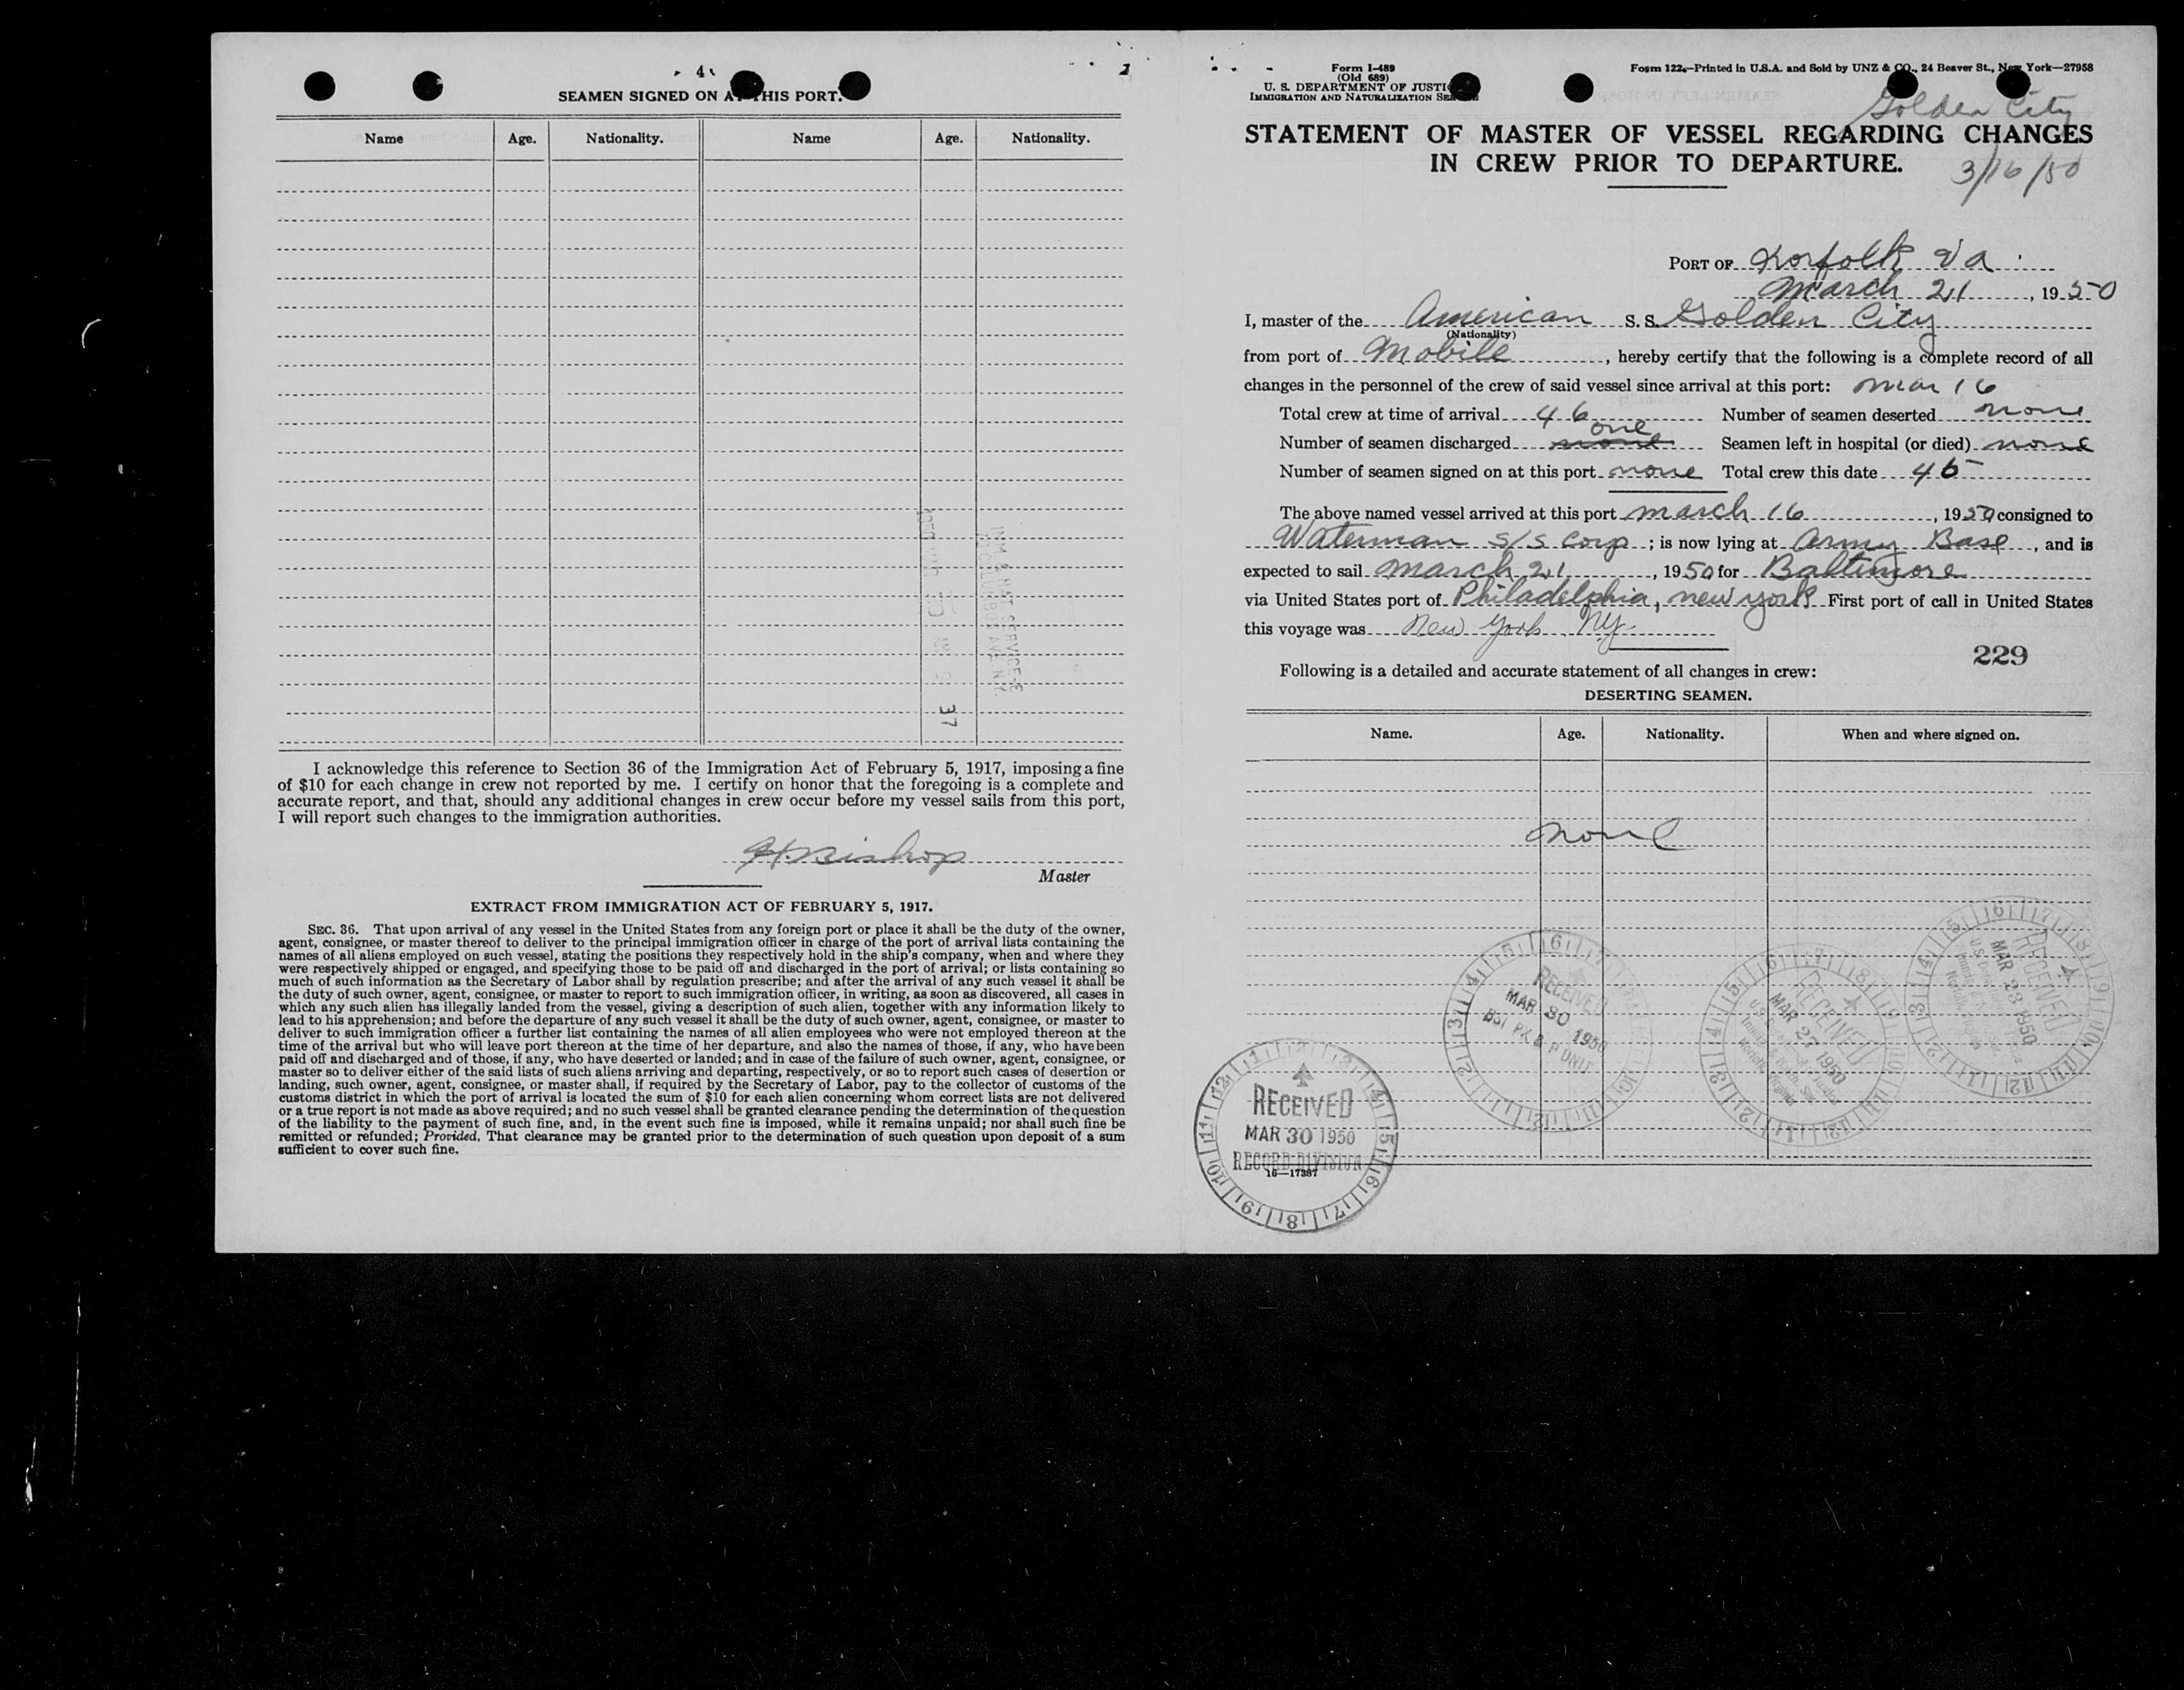 4
SEAMEN SIGNED ON AT THIS PORT.
Name Age. Nationality. Name Age. Nationality.
37
I acknowledge this reference to Section 36 of the Immigration Act of February 5, 1917, imposing a fine
of $10 for each change in crew not reported by me. I certify on honor that the foregoing is a complete and
accurate report, and that, should any additional changes in crew occur before my vessel sails from this port,
I will report such changes to the immigration authorities.
H. Bishop
Master
EXTRACT FROM IMMIGRATION ACT OF FEBRUARY 5, 1917.
SEC. 36. That upon arrival of any vessel in the United States from any foreign port or place it shall be the duty of the owner,
agent, consignee, or master thereof to deliver to the principal immigration officer in charge of the port of arrival lists containing the
names of all aliens employed on such vessel, stating the positions they respectively hold in the ship's company, when and where they
were respectively shipped or engaged, and specifying those to be paid off and discharged in the port of arrival; or lists containing so
much of such information as the Secretary of Labor shall by regulation prescribe; and after the arrival of any such vessel it shall be
the duty of such owner, agent, consignee, or master to report to such immigration officer, in writing, as soon as discovered, all cases in
which any such alien has illegally landed from the vessel, giving a description of such alien, together with any information likely to
lead to his apprehension; and before the departure of any such vessel it shall be the duty of such owner, agent, consignee, or master to
deliver to such immigration officer a further list containing the names of all alien employees who were not employed thereon at the
time of the arrival but who will leave port thereon at the time of her departure, and also the names of those, if any, who have been
paid off and discharged and of those, if any, who have deserted or landed; and in case of the failure of such owner, agent, consignee, or
master so to deliver either of the said lists of such aliens arriving and departing, respectively, or so to report such cases of desertion or
landing, such owner, agent, consignee, or master shall, if required by the Secretary of Labor, pay to the collector of customs of the
customs district in which the port of arrival is located the sum of $10 for each alien concerning whom correct lists are not delivered
or a true report is not made as above required; and no such vessel shall be granted clearance pending the determination of the question
of the liability to the payment of such fine, and, in the event such fine is imposed, while it remains unpaid; nor shall such fine be
remitted or refunded; Provided, That clearance may be granted prior to the determination of such question upon deposit of a sum
sufficient to cover such fine.
Form I-489
(Old 689)
U. S. DEPARTMENT OF JUSTICE
IMMIGRATION AND NATURALIZATION SERVICE
Form 122.—Printed in U.S.A. and Sold by UNZ & CO., 24 Beaver St., New York—27958
Golden City
STATEMENT OF MASTER OF VESSEL REGARDING CHANGES
IN CREW PRIOR TO DEPARTURE.
3/16/50
PORT OF Norfolk Va.
March 21, 1950
I, master of the American S. S. Golden City
(Nationality)
from port of Mobile, hereby certify that the following is a complete record of all
changes in the personnel of the crew of said vessel since arrival at this port: Mar 16
Total crew at time of arrival 46 Number of seamen deserted none
Number of seamen discharged none one Seamen left in hospital (or died) none
Number of seamen signed on at this port none Total crew this date 45
The above named vessel arrived at this port March 16, 1950 consigned to
Waterman S/S Corp; is now lying at Army Base, and is
expected to sail March 21, 1950 for Baltimore
via United States port of Philadelphia, New York First port of call in United States
this voyage was New York, NY.
229
Following is a detailed and accurate statement of all changes in crew:
DESERTING SEAMEN.
Name. Age. Nationality. When and where signed on.
None
RECEIVED
MAR 30 1950
RECEIVED
MAR 27 1950
RECEIVED
MAR 23 1950
RECEIVED
MAR 30 1950
RECORD DIVISION
16—17387